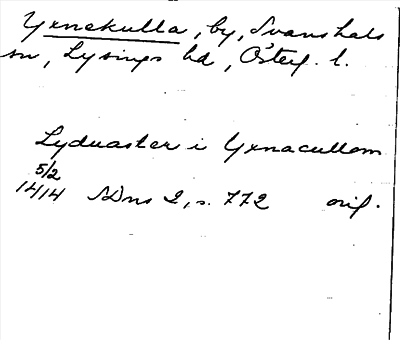 Yxnekulla, by, Svanshals
sn, Lysings hd, Östg. l.
Lyduaster i Yxnacullom
5/2
1414 SDns 2, s. 772 orig.